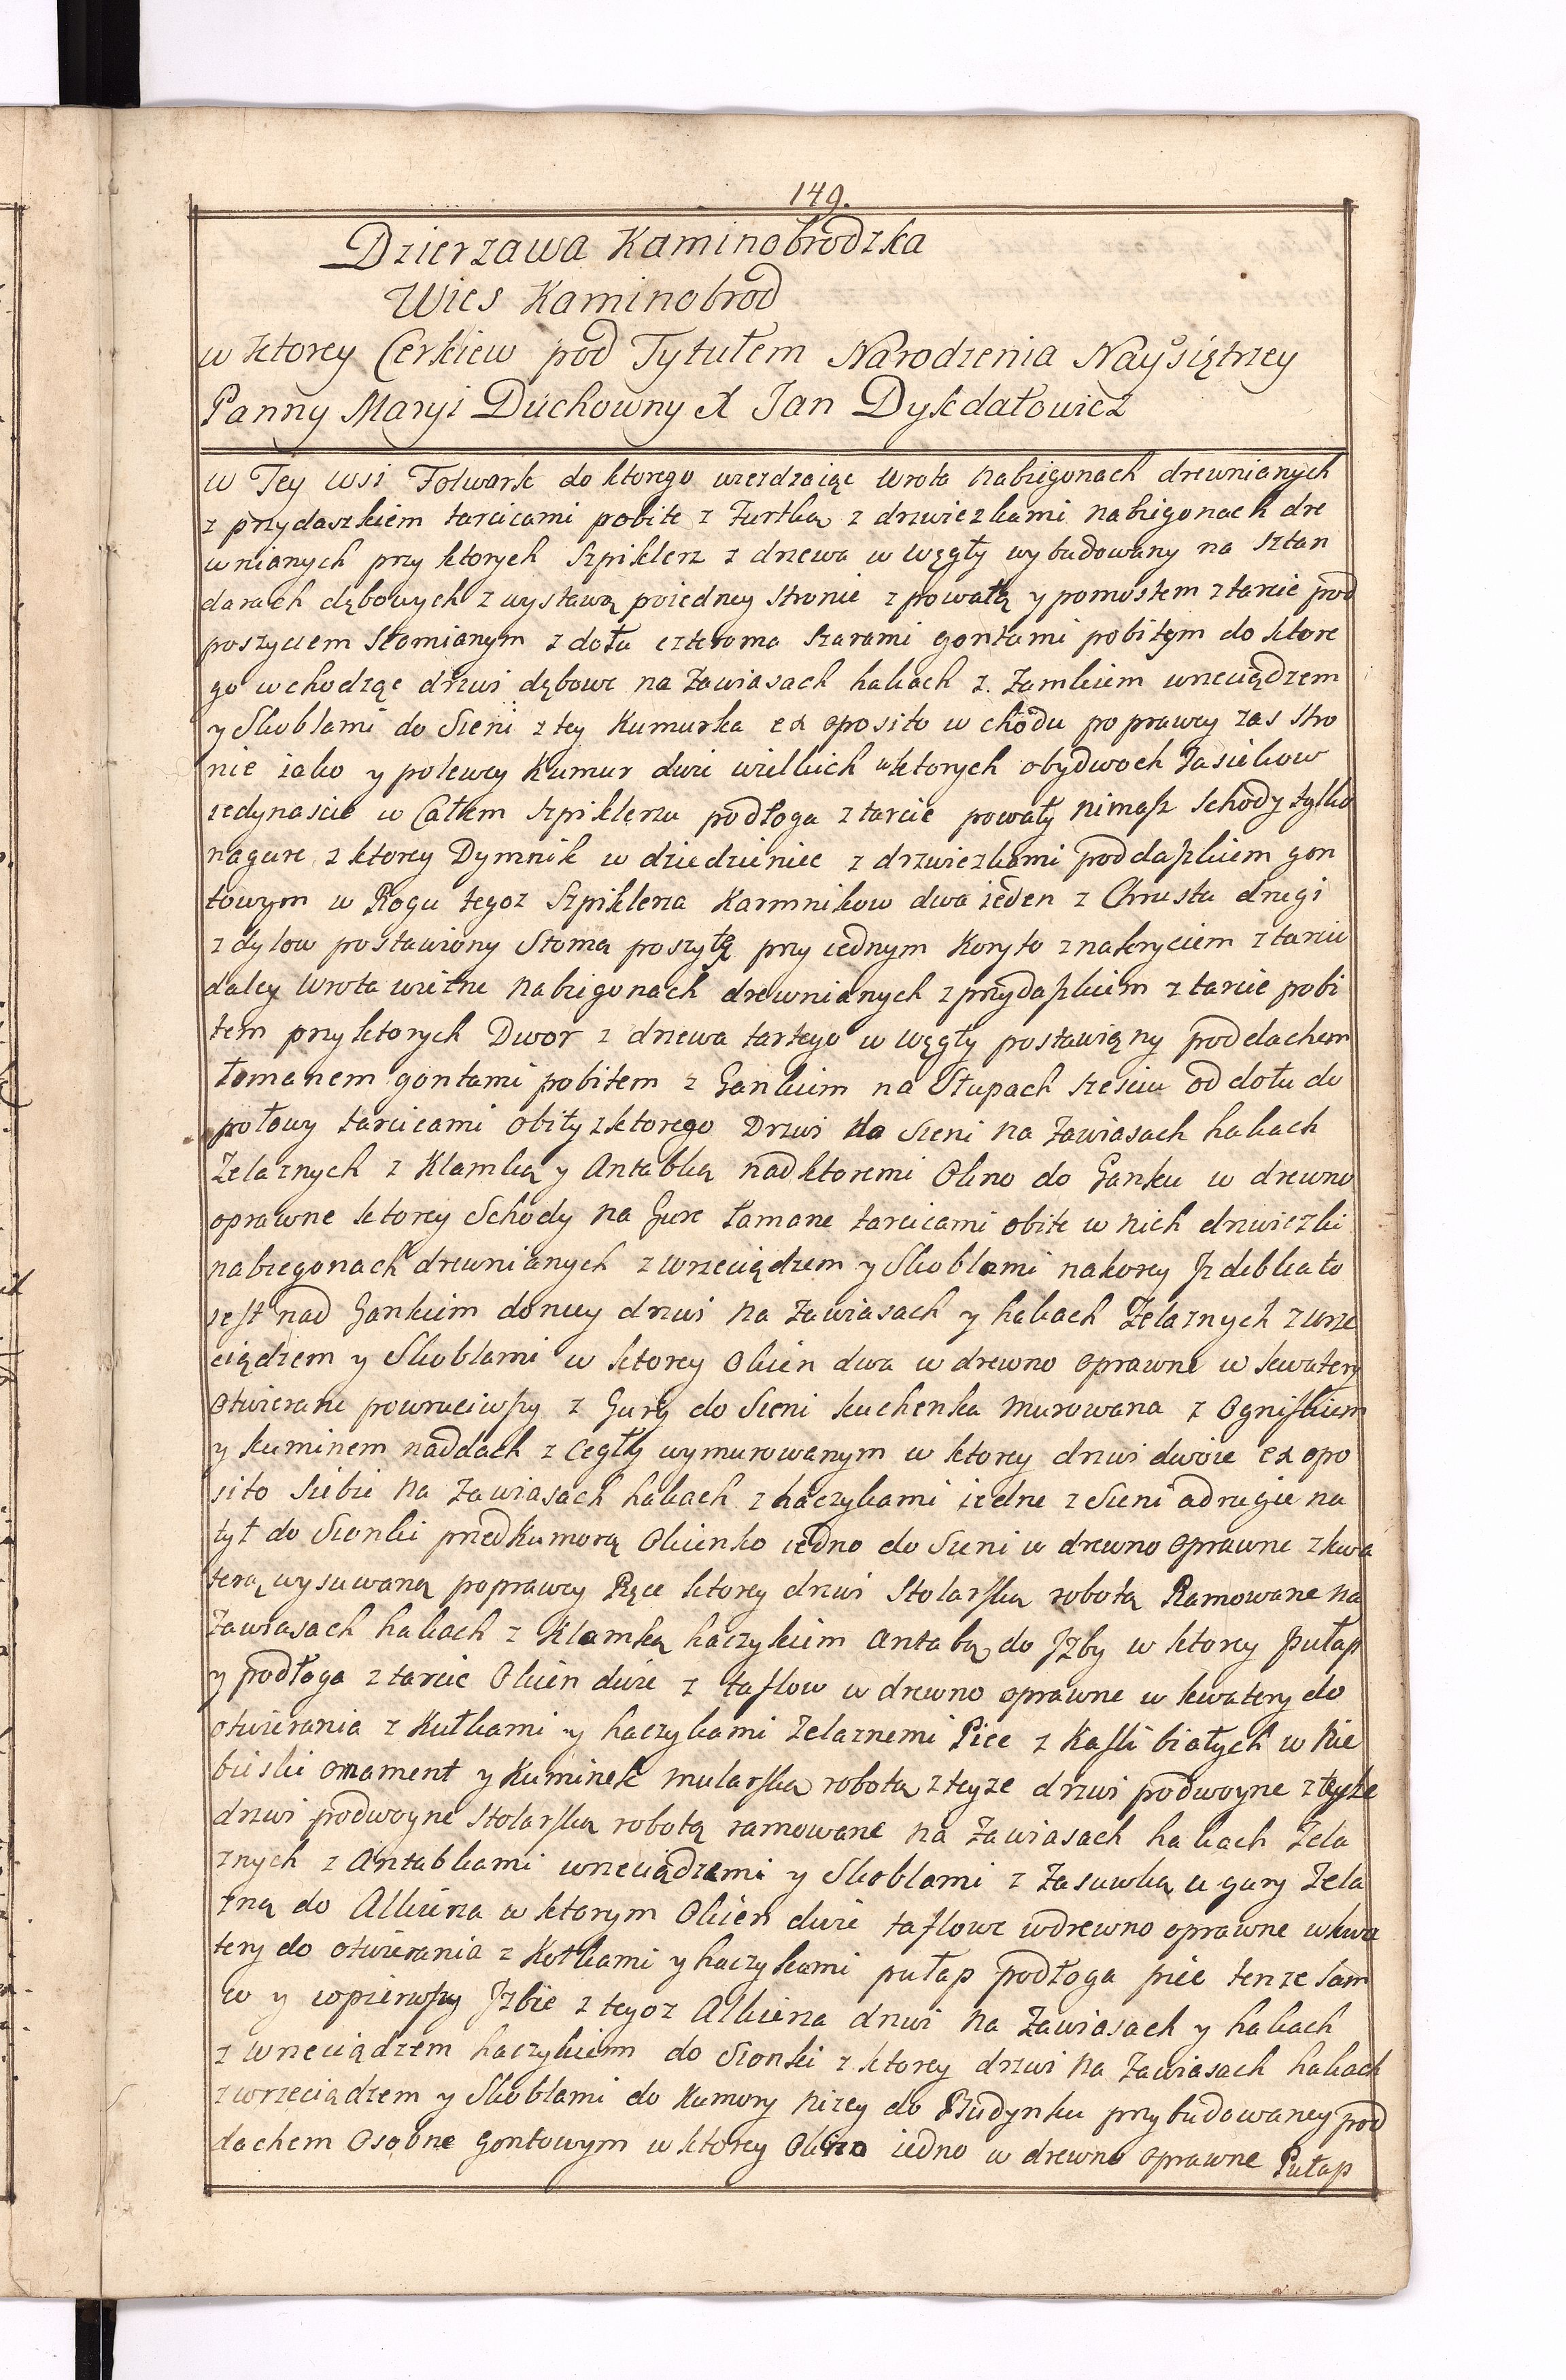 149.
Dzierzawa Kaminobrodzka
Wies Kaminobrod
w ktorey Cerkiew pod Tytułem Narodzenia Nayśiętrzey
Panny Maryi Duchowny X Jan Dyskdałowicz
w Tey wsi Folwark do ktorego wierdzaiąc Wrota nabiegonach drewnianych
z przydaszkiem tarcicami pobite z Furtką z drzwiczkami nabiegonach dre
wnianych przy ktorych Szpiklerz z drzewa w węgły wybudowany na sztan
darach dębowych z wystawą poiedney stronie z powałą y pomostem z tarcic pod
poszyciem słomianym z dołu czteroma szarami gontami pobitym do ktore
go wchodząc drzwi dębowe na zawiasach hakach z zamkiem wrzeciądzem
y Skoblami do Sieni z tey Kumurka ex oposito w chodu po prawey zas stro
nie iako y polewey Kumur dwie wielkich w ktorych obydwoch Zasiekow
iedynascie w Całem Szpiklerzu podłoga z tarcic powały nimasz Schody tylko
nagure z ktorey Dymnik w dziedziniec z drzwiczkami pod daszkiem gon
towym w Rogu tegoz Szpiklerza Karmnikow dwa ieden z Chrustu drugi
z dylow postawiony Słomą poszyty przy iednym Koryto z nakryciem z tarcic
daley Wrota wietne nabiegonach drewnianych z przydaszkiem z tarcic pobi
tem przy ktorych Dwor z drzewa tartego w węgły postawiony pod dachem
łomanem gontami pobitem z Gankiem na Słupach szesciu od dołu do
połowy tarcicami obity z ktorego Drzwi do Sieni na zawiasach hakach
Zelaznych z Klamką y Antabką nad ktoremi Okno do Ganku w drewno
oprawne ktorey Schody na Gure łamane tarcicami obite w nich drzwiczki
nabiegonach drewnianych z wrzeciądzem y Skoblami naktorey Jzdebka to
iest nad Gankiem doniey drzwi na zawiasach y hakach Zelaznych z wrze
ciądzem y Skoblami w ktorey Okien dwa w drewno oprawne w kwatery
otwierane powruciwszy z Gury do Sieni kuchenka murowana z Ogniskiem
y kuminem naddach z cegły wymurowanym w ktorey drzwi dwoie ex opo
sito siebie na zawiasach hakach z haczykami iedne z Sieni adrugie na
tył do Sionki przed kumorą Okienko iedno do Sieni w drewno oprawne z kwa
terą wysuwaną poprawey Ręce ktorey drzwi Stolarską robotą Ramowane na
zawiasach hakach z Klamką haczykiem Antabą do Jzby w ktorey pułap
y podłoga z tarcic Okien dwie z taflow w drewno oprawne w kwatery do
otwierania z Kulkami y haczykami zelaznemi Piec z Kafli białych w Nie
bieski ornament y Kuminek mularską robotą z teyze drzwi podwoyne z teyze
drzwi podwoyne Stolarską robotą ramowane na zawiasach hakach Zela
znych z Antabkami wrzeciądzami y Skoblami z zasuwką u gury Zela
zną do Alkierza w ktorym Okien dwie taflowe wdrewno oprawne wkwa
tery do otwierania z Kotkami y haczykami pułap podłoga piec tenze sam
co y wpierwszy Jzbie z tegoz Alkierza drzwi na Zawiasach y hakach
z wrzeciądzem haczykiem do Sionki z ktorey drzwi na zawiasach hakach
z wrzeciądzem y Skoblami do Kumory nizey do Budynku przybudowaney pod
dachem Osobne gontowym w ktorey Okno iedno w drewno oprawne Pułap